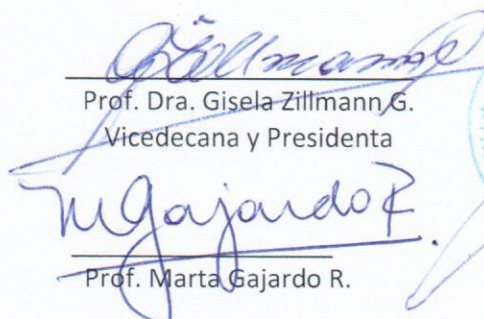 GZillmann G
Prof. Dra. Gisela Zillmann G.
Vicedecana y Presidenta
MGajardo R.
Prof. Marta Gajardo R.